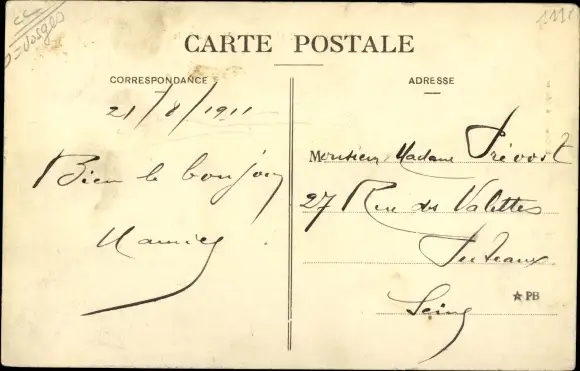 Vosges
CARTE POSTALE
CORRESPONDANCE
ADRESSE
21/8/1911
Bien le bonjour
Maurice
Monsieur Madame Prévost
27 Rue des Valettes
Puteaux
Seine
PB